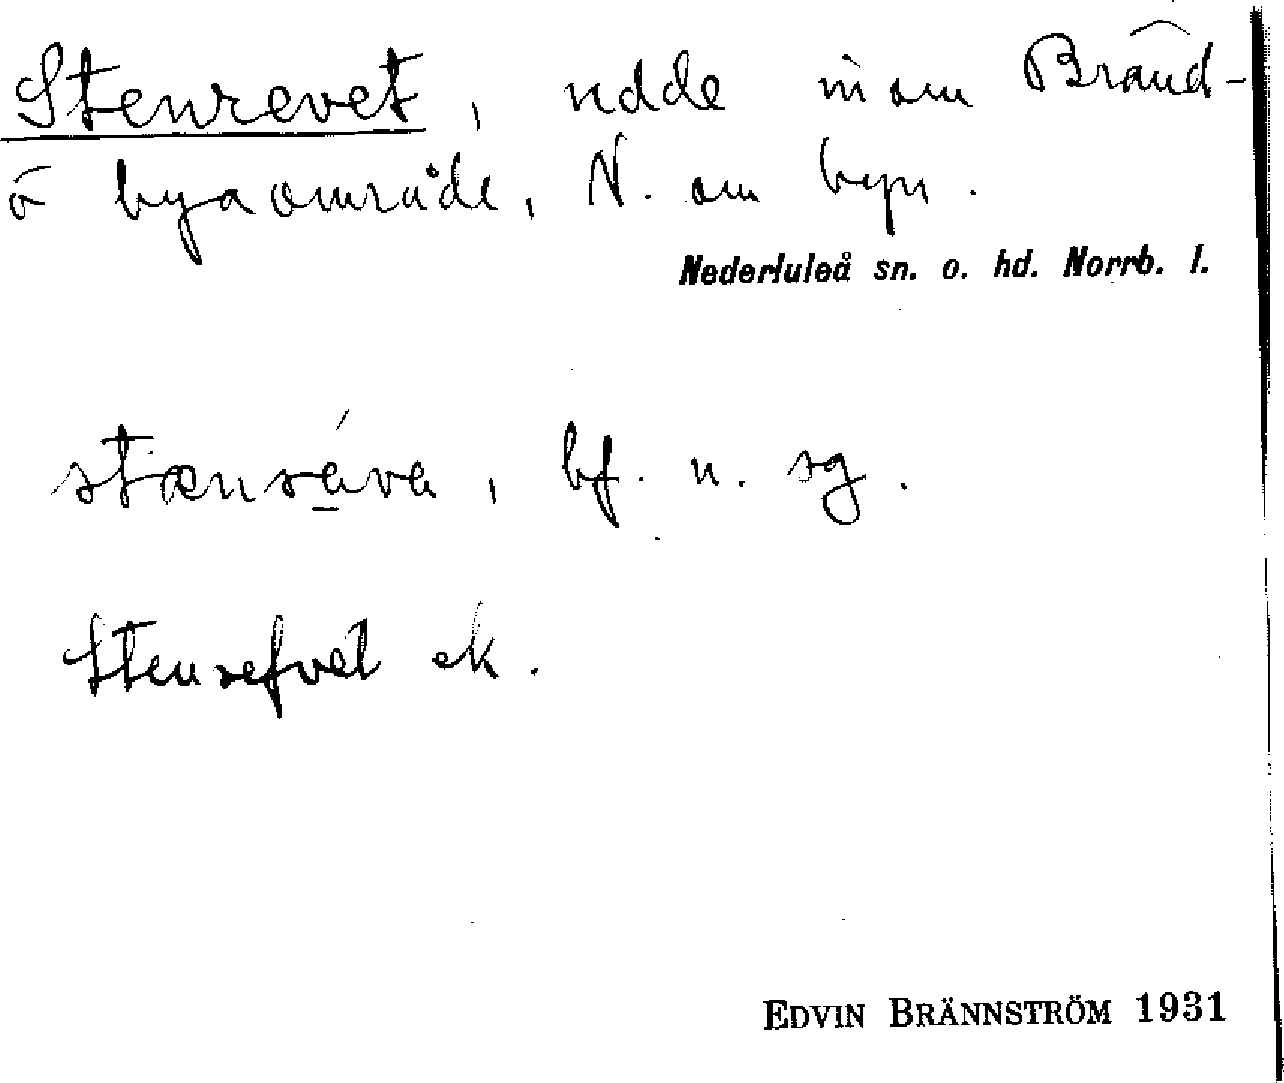 Stenrevet, udde inom Bränd-
ö byaområde, N. om byn.
Nederluleå sn. o. hd. Norrb. l.
bf. n. sg.
Stenrefvet ek.
EDVIN BRÄNNSTRÖM 1931